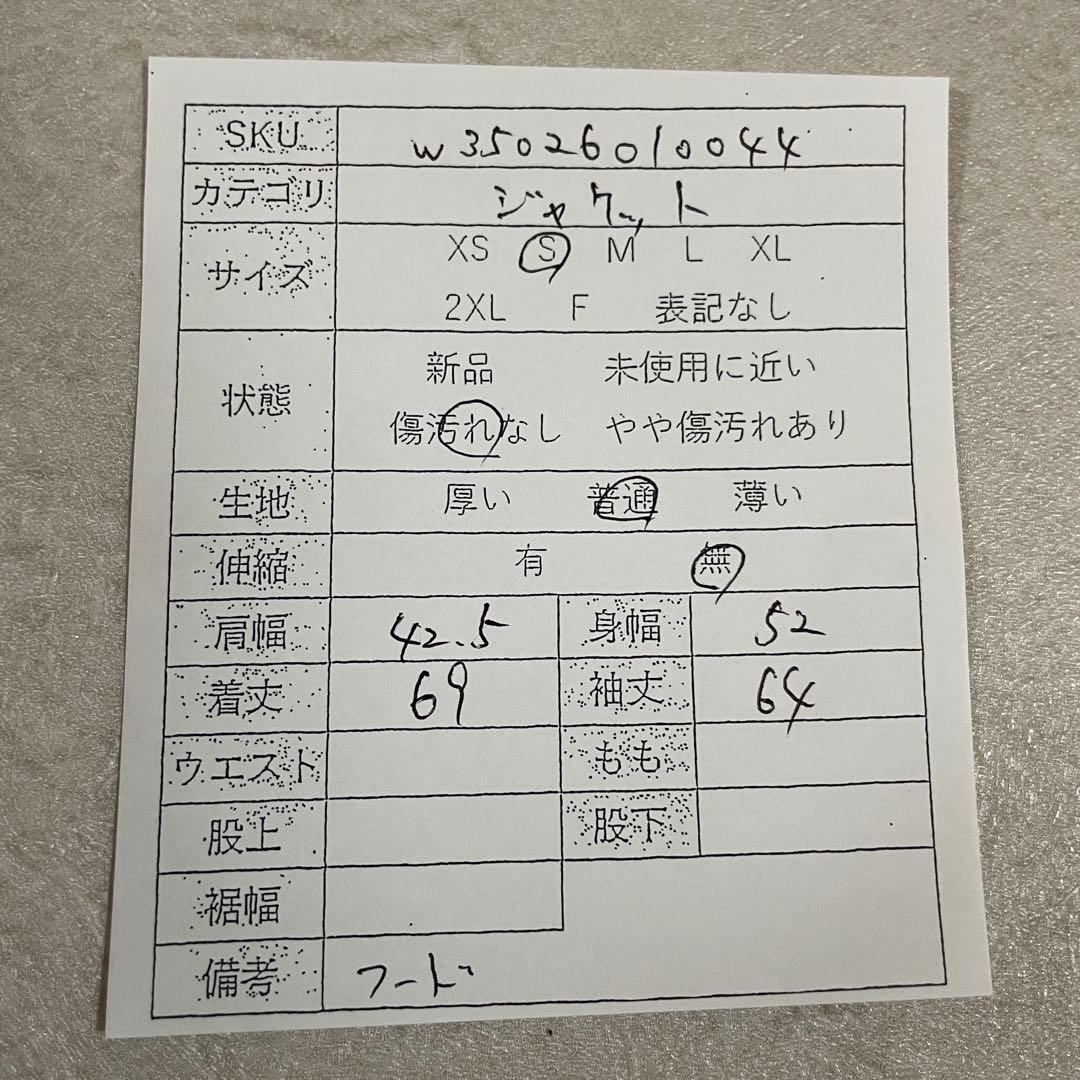 SKU w35026010044
カテゴリ ジャケット
サイズ XS S M L XL
2XL F 表記なし
状態 新品 未使用に近い
傷汚れなし やや傷汚れあり
生地 厚い 普通 薄い
伸縮 有 無
肩幅 42.5 身幅 52
着丈 69 袖丈 64
ウエスト もも
股上 股下
裾幅
備考 フード